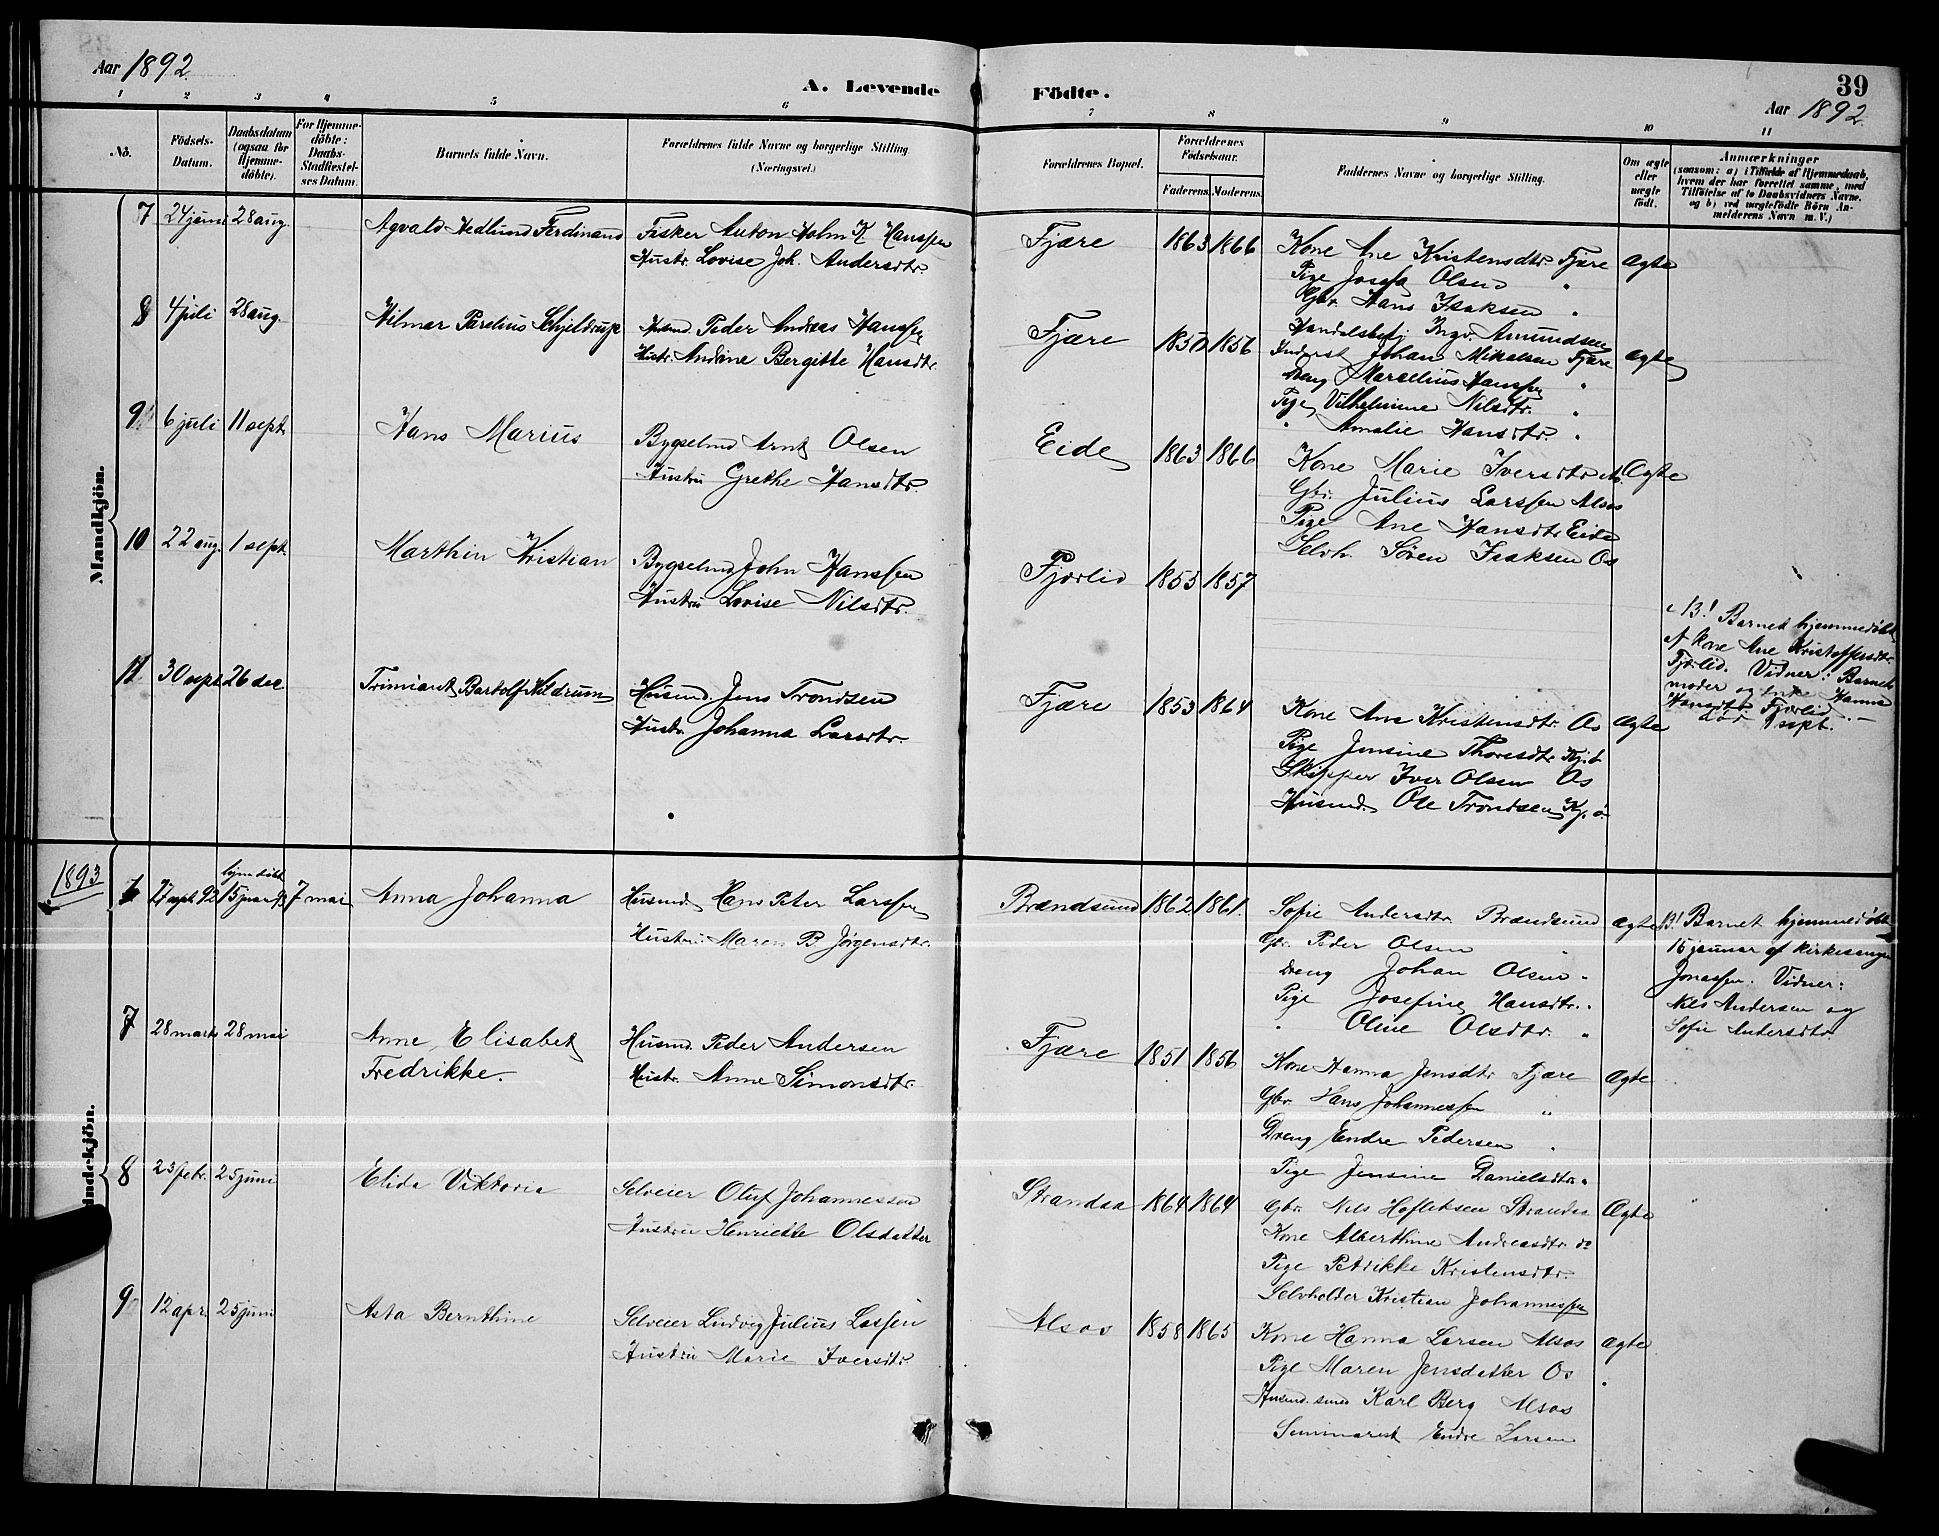 Aar 1892.
A. Levende Födte.
39
Aar 1892.
1 2 3 4 5 6 7 8 9 10 11
No.
Födsels-Datum.
Daabsdatum (ogsaa for Hjemme-döbte).
For Hjemme-döbte: Daabs-Stadfæstel-ses Datum.
Barnets fulde Navn.
Forældrenes fulde Navne og borgerlige Stilling (Næringsvei.)
Forældrenes Bopæl.
Forældrenes Födselsaar.
Faderens. Moderens.
Faddernes Navne og borgerlige Stilling.
Om ægte eller uægte födt.
Anmærkninger
(saasom: a) i Tilfælde af Hjemmedaab, hvem der har forrettet samme, med Tilföielse af to Daabsvidners Navne. og b) ved uægtefödte Börn An-melderens Navn m. V.)
Mandkjön.
7 24 juni 28 aug. Agvald Hedlund Ferdinand Fisker Anton Holm K Hanssen
Hustr. Lovise Joh. Andersdtr.
Fjære 1863 1866 Kone Ane Kristensdtr. Fjære Ægte
Pige Josefa Olsen "
Gbr. Hans Isaksen "
8 4 juli 28 aug. Hilmar Parelius Schjeldrup Husmd. Peder Andreas Hanssen
Hustr. Andrine Bergitte Hansdtr.
Fjære 1850 1856 Handelsbetj Ingv. Amundsen
Inderst Johan Mikalsen Fjære ægte
Dreng Marcelius Hanssen "
Pige Vilhelmine Nilsdtr. "
" Amalie Hansdtr. "
9 6 juli 11 sept. Hans Marius Bygselmd Arnt Olsen
Hustru Grethe Hansdtr.
Eide 1863 1866 Kone Marie Iversdtr Ægte
Gbr. Julius Larssen Alsos
Pige Ane Hansdtr Eide
Selvh. Søren Isaksen Os
10 22 aug. 1 sept. Marthin Kristian Bygselmd John Hanssen
Hustru Lovise Nilsdtr.
Fjærlid 1855 1857
B! Barnet hjemmedøbt
af Kone Ane Kristoffersdtr
Fjærlid. Vidner: Barnets
moder og enke Hanna
Hansdtr. Fjærlid. —
død 9 sept.
11 30 sept 26 dec. Trimiant Bartolf Hildrum Husmd. Jens Trondsen
Hustr. Johanna Larsdtr.
Fjære 1853 1864 Kone Ane Kristensdtr. Os Ægte
Pige Jensine Thoresdtr.
Skipper Iver Olsen Os
Husmd. Ole Trondsen
1893
indekjön.
6 27 sept 92 hjemdøbt 15 januar 93 7 mai Anna Johanna Husmd. Hans Peter Larssen
Hustru Maren B Jørgensdtr.
Brændsund 1862 1861. Sofie Andersdtr Brændsund ægte
Gbr. Peder Olsen "
Dreng Johan Olsen "
Pige Josefine Hansdtr. "
" Oline Olsdtr. "
B! Barnet hjemmedøbt
15 januar af kirkesanger
Jonassen. Vidner:
Nils Andersen og
Sofie Andersdtr.
7 28 marts 28 mai Anne Elisabet
Fredrikke.
Husmd. Peder Andersen
Hustr. Anne Simonsdtr.
Fjære 1851 1856 Kone Hanna Jensdtr Fjære Ægte
Gbr. Hans Johannessen "
Dreng Endre Pedersen "
Pige Jensine Danielsdtr "
8 23 febr. 25 juni Elida Viktoria Selveier Oluf Johannessen
Hustru Henriette Olsdatter
Strandaa 1864 1864 Gbr. Nils Strandaa Ægte
Kone Alberthine Andreasdtr. do
Pige Petrikke Kristensdtr.
Selvholder Kristian Johannessen
9 12 apr. 25 juni Asta Bernthine Selveier Ludvig Julius Larssen
Hustru Marie Iversdtr
Alsos 1858 1865 Kone Hanna Larsen Alsos ægte
Pige Maren Jensdatter Os
Husmd. smed Karl Berg Alsos
Seminarist Endre Larsen